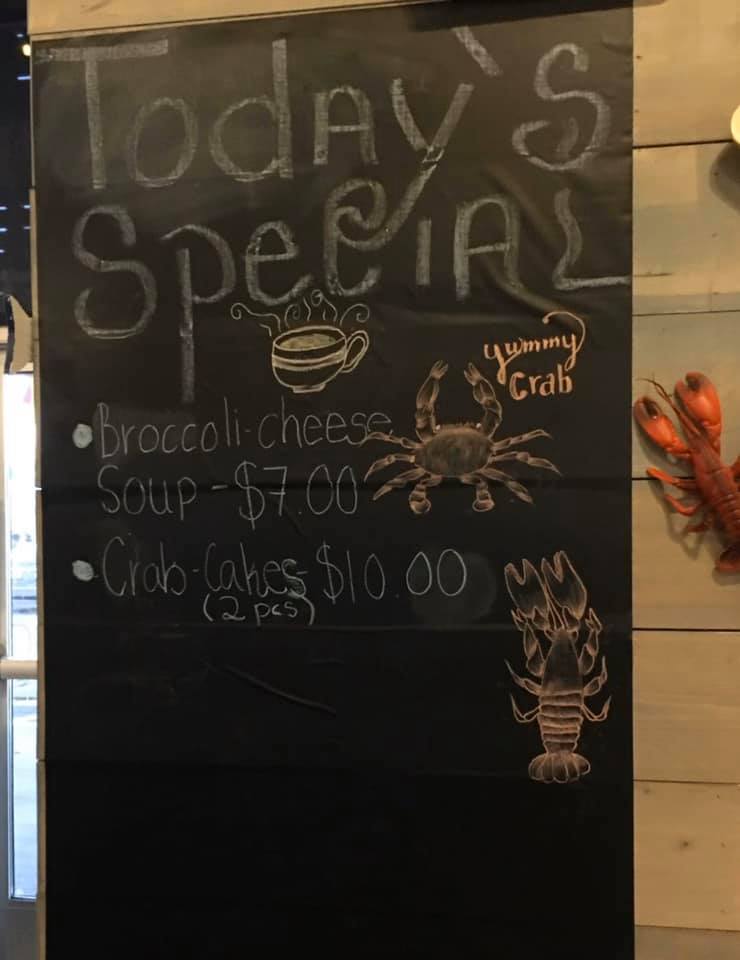 Today's
Special
yummy
Crab
• Broccoli-cheese
Soup - $7.00
• Crab-Cakes- $10.00
(2 pcs)